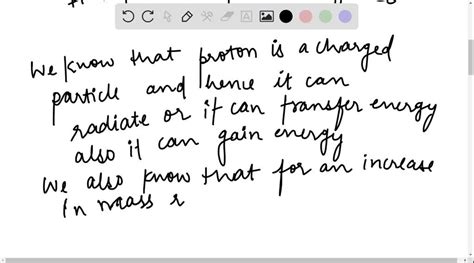 we know that proton is a charged
particle and hence it can
radiate or it can transfer energy
also it can gain energy
we also know that for an increase
in mass r